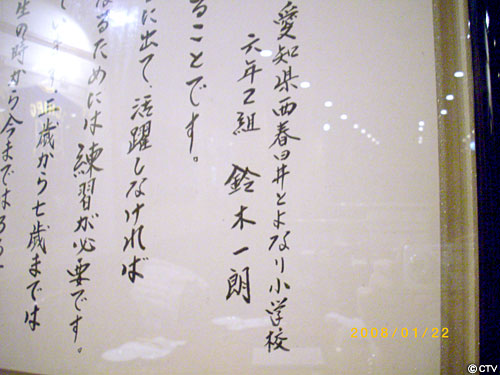 愛知県西春日井とよなり小学校
六年2組 鈴木一朗
ることです。
に出て、活躍しなければ
るためには練習が必要です。
三歳から七歳までは
生の時から今までは
2008/01/22
©CTV